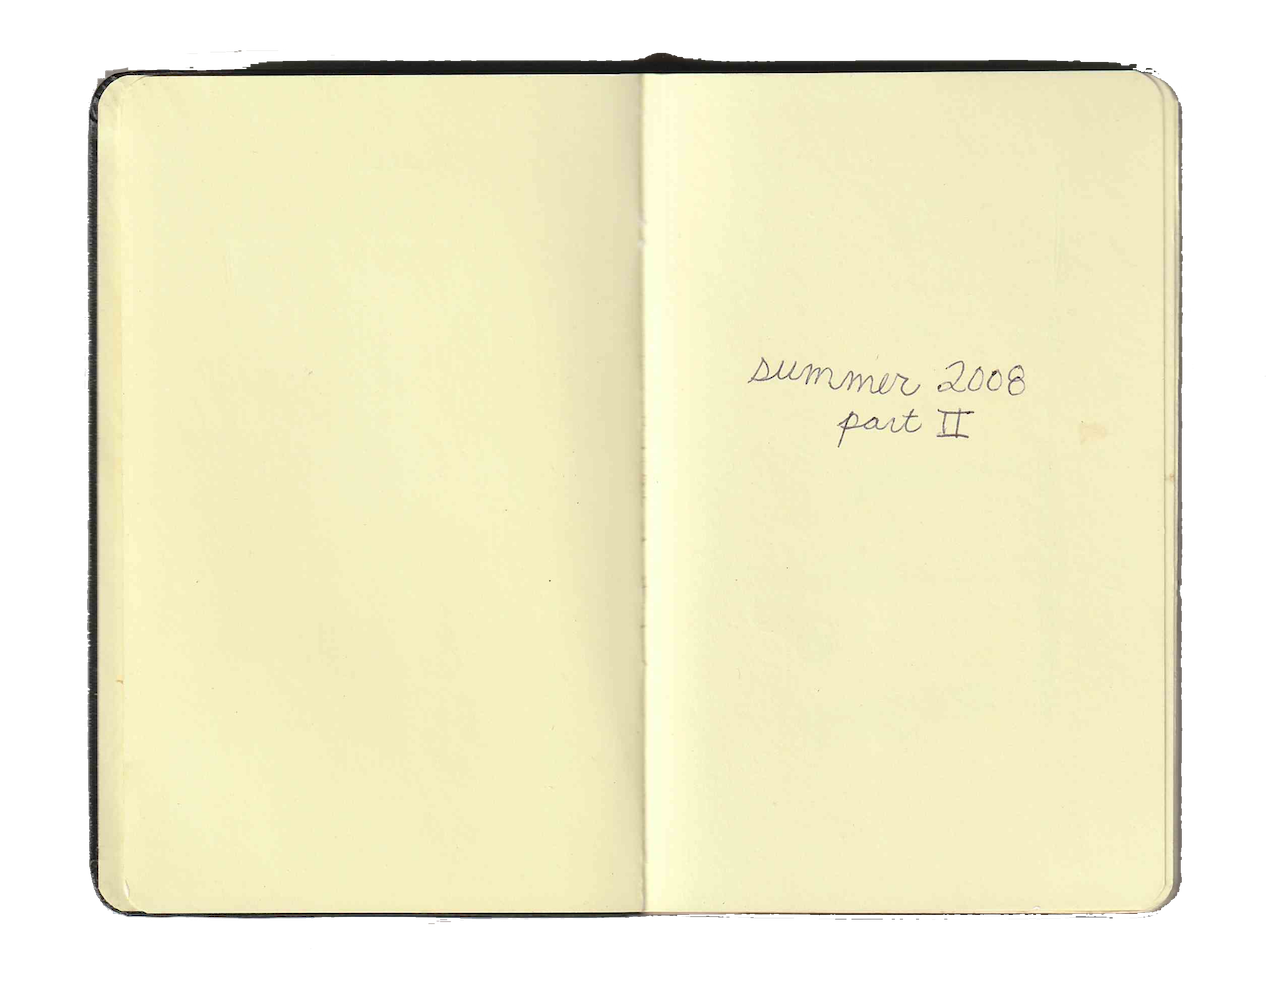 summer 2008
part II